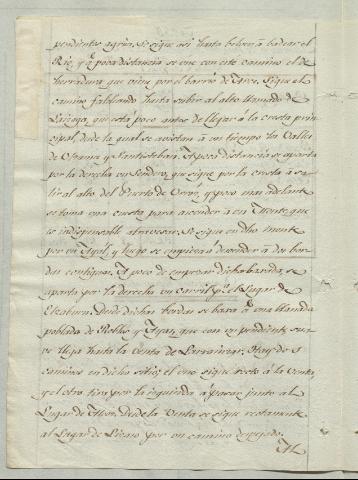 pendientes agrias. Se sigue así hasta bolver à badear el
Rio, y á poca distancia se une con este camino el de
herradura que viene por el barrio de Ares. Sigue el
camino faldeando hasta subir al alto llamado de
que está poco antes de llegar à la cresta prin-
cipal, desde la qual se avistan à un tiempo los Valles
de Oltzama y Santisteban. A poca distancia se aparta
por la derecha un Sendero, que sigue por la cresta à sa-
lir al alto del Puerto de y poco mas adelante
se toma una cuesta para ascender à un Monte, que
es indispensable atravesar. Se sigue en dho monte
por un y luego se empieza à descender à dos bor-
das contiguas. A poco de empezar dicha baxada, se
aparta por la derecha un carril pª. el Lugar de
Elzaburu. Desde dichas bordas se baxa à una llanada
poblada de Robles, y que con un pendiente sua-
ve llega hasta la Venta de Larrainzar. Hay dos
caminos en dicho sitio; el uno sigue recto à la Venta,
y el otro tira por la izquierda à pasar junto al
Lugar de Desde la Venta se sigue rectamente
al Lugar de Lizaso por un camino despejado.
Al